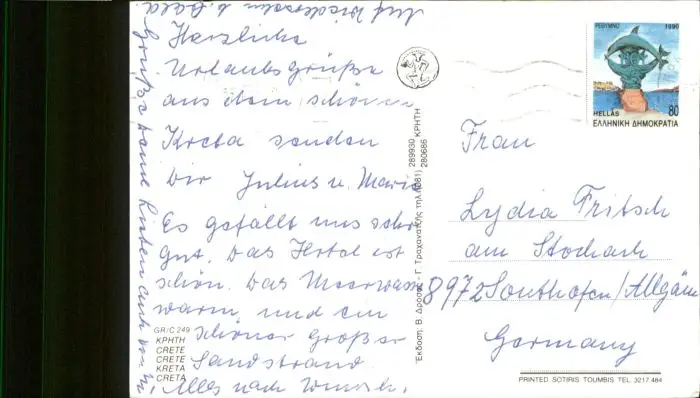 Herzliche
Urlaubsgrüße
aus dem schönen
Kreta senden
Dir Julius u. Maria
Es gefällt uns sehr
gut. Das Hotel ist
schön. Das Meerwasser
warm, und ein
schöner großer
Sandstrand
Alles nach Wunsch.
Auf Wiedersehn b. Bald.
Grüße
GR/C 249
ΚΡΗΤΗ
CRETE
CRETE
KRETA
CRETA
Έκδοση: Β. Δροσος - Γ. Τραχανατζής τηλ. (081) 289930 ΚΡΗΤΗ
280686
ΡΕΘΥΜΝΟ 1990
HELLAS 80
ΕΛΛΗΝΙΚΗ ΔΗΜΟΚΡΑΤΙΑ
Frau
Lydia Fritsch
am Stocach
8972 Sonthofen/Allgäu
Germany
PRINTED SOTIRIS TOUMBIS TEL. 3217 484